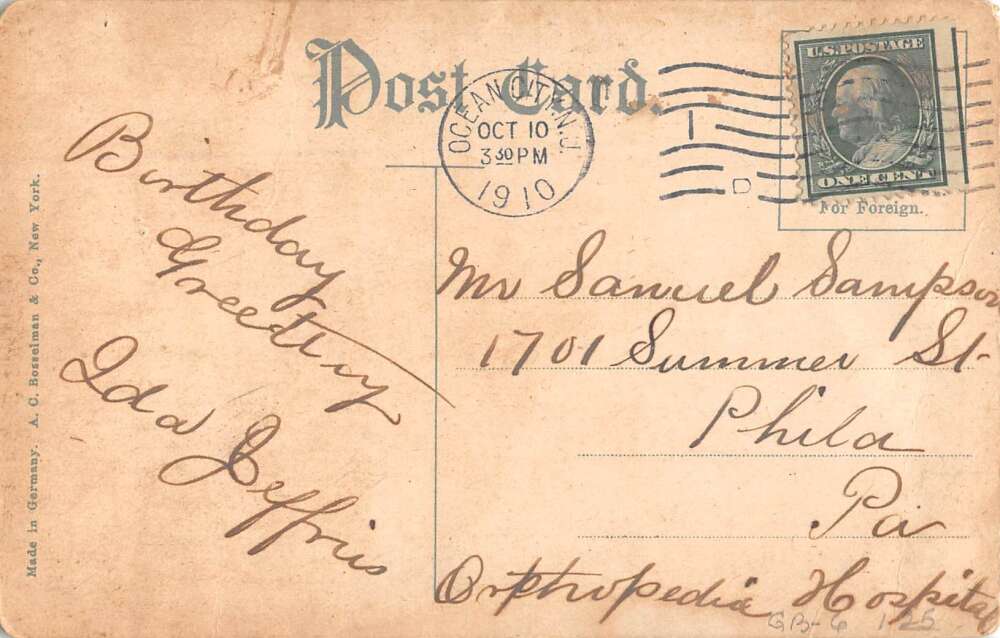 Post Card.
OCEAN CITY, N.J.
OCT 10
3 30 PM
1910
U.S. POSTAGE
ONE CENT
For Foreign.
Birthday
Greeting
Ida Jeffries
Mr Samuel Sampson
1701 Summer St
Phila
Pa
Orthopedia Hospital
QB-6 1.25
Made in Germany. A. C. Bosselman & Co., New York.